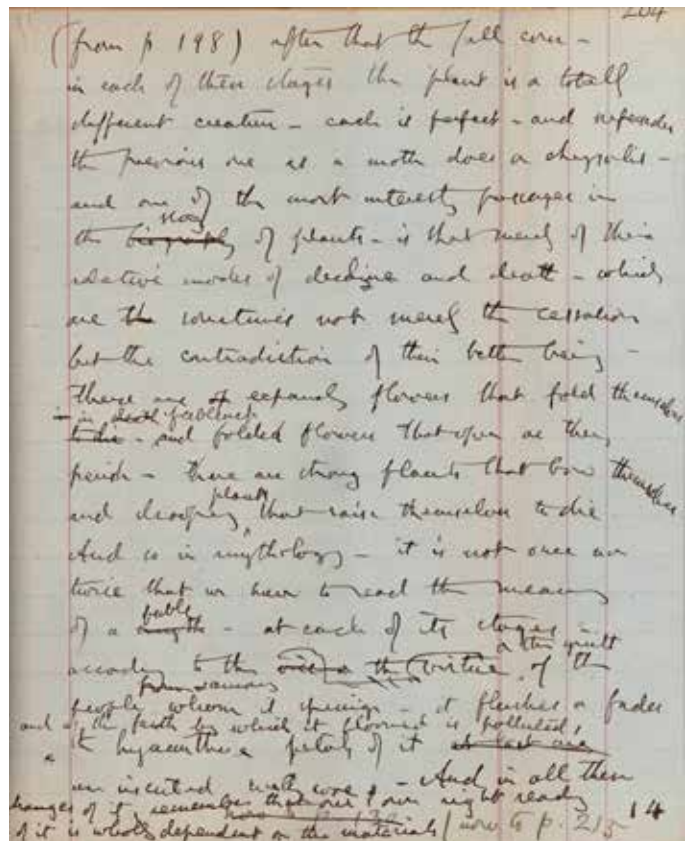 204
(from p 198) after that the full corn -
in each of these stages the plant is a totally
different creature - each is perfect - and supersedes
the previous one as a moth does a chrysalis -
and one of the most interesting passages in
story
the biography of plants - is that merely of their
relative modes of decline and death - which
are the sometimes not merely the cessation
but the contradiction of their better being -
There are expanding flowers that fold themselves
in death feebleness
to die - and folded flowers that open as they
perish - there are strong plants that bow themselves
plants
and drooping that raise themselves to die
And so in mythology - it is not once or
twice that we have to read the meaning
fable
of a myth - at each of its stages -
or the spirit
according to the virtue of the
from various
people whom it springs - it flushes or fades
and if the faith by which it bloomed is polluted,
the hyacinthine petals of it at last are
are inscribed with woe, - And in all these
changes of it, remember that our own right reading
of it is wholly dependent on the materials (now to p. 215
14